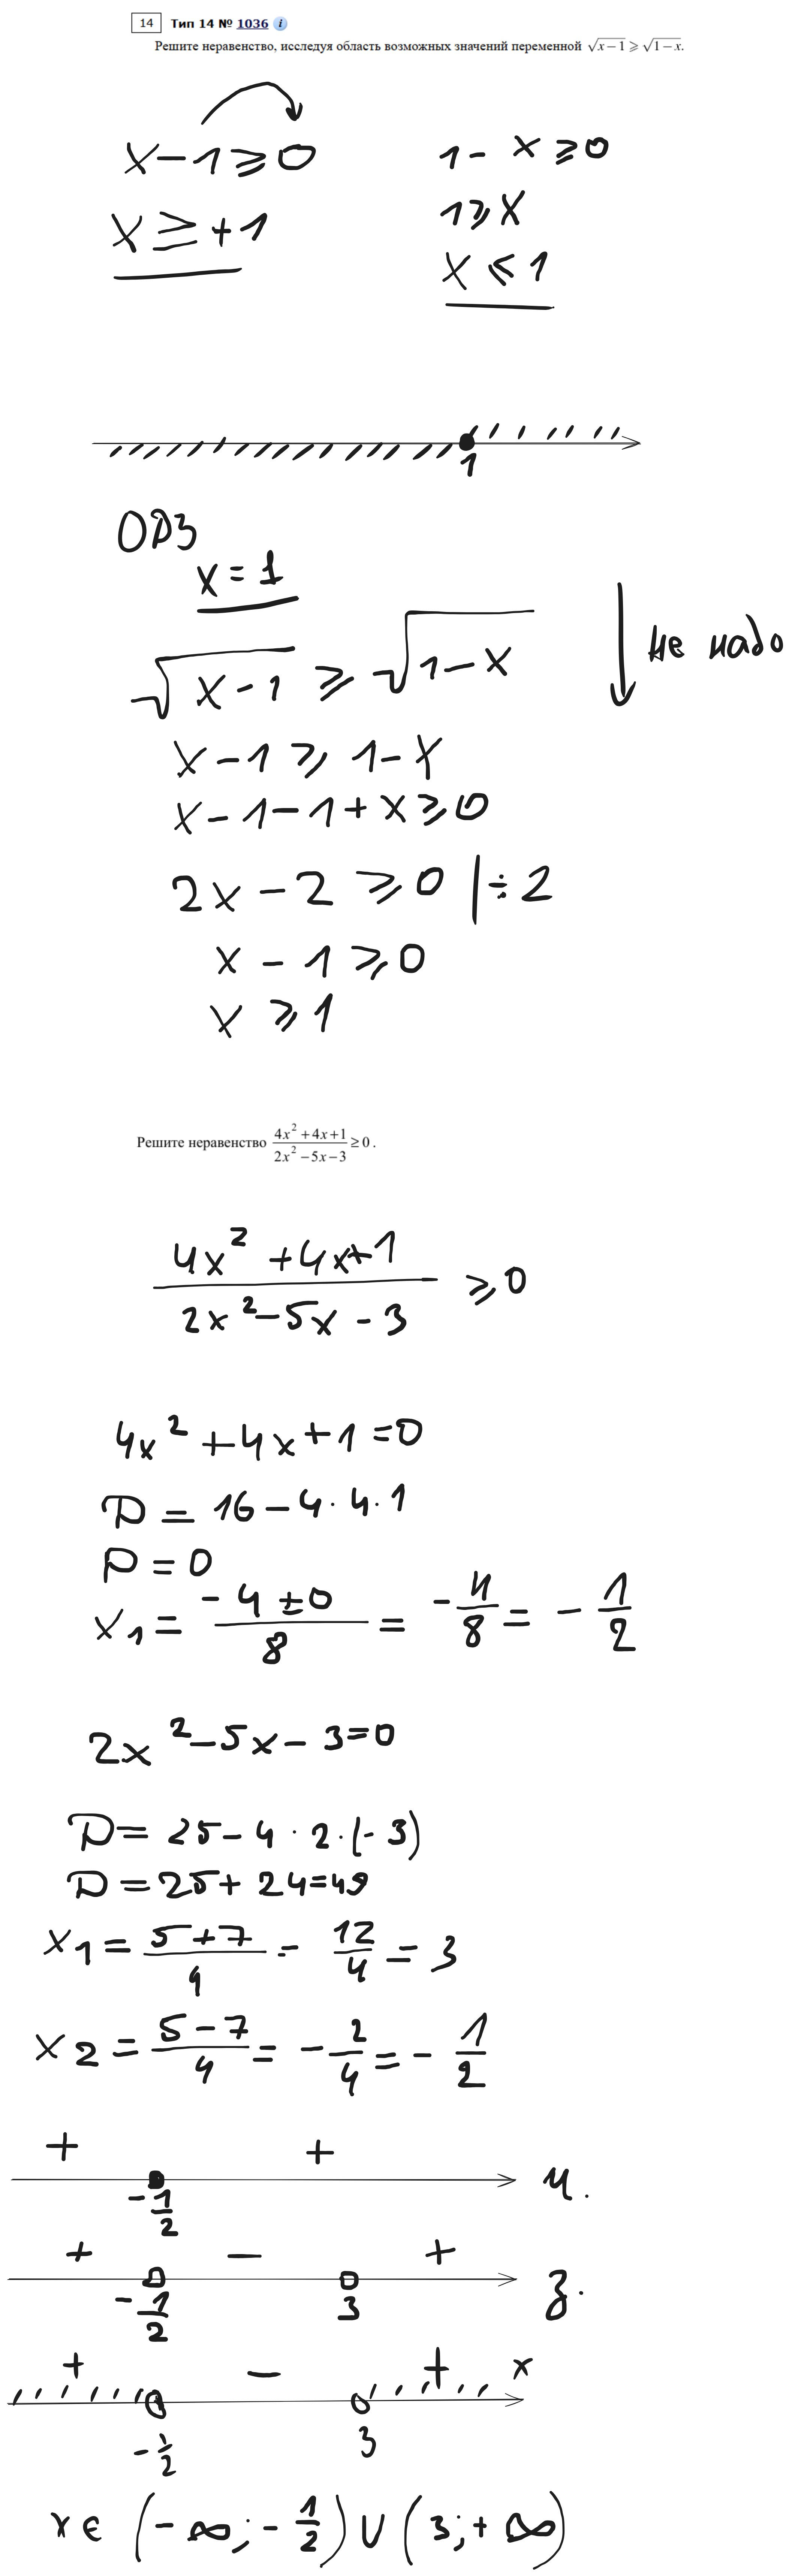 14 Тип 14 № 1036 i
Решите неравенство, исследуя область возможных значений переменной √(x−1) ⩾ √(1−x).
x − 1 ⩾ 0
1 − x ⩾ 0
x ≥ +1
1 ⩾ x
x ⩽ 1
1
ОДЗ
x = 1
√(x − 1) ⩾ √(1 − x)
не надо
x − 1 ⩾ 1 − x
x − 1 − 1 + x ⩾ 0
2x − 2 ⩾ 0 | ÷ 2
x − 1 ⩾ 0
x ⩾ 1
Решите неравенство (4x² + 4x + 1)/(2x² − 5x − 3) ≥ 0.
(4x² + 4x + 1)/(2x² − 5x − 3) ⩾ 0
4x² + 4x + 1 = 0
D = 16 − 4 · 4 · 1
D = 0
x₁ = (−4 ± 0)/8 = −4/8 = −1/2
2x² − 5x − 3 = 0
D = 25 − 4 · 2 · (−3)
D = 25 + 24 = 49
x₁ = (5 + 7)/4 = 12/4 = 3
x₂ = (5 − 7)/4 = −2/4 = −1/2
+ +
−1/2 ч.
+ − +
−1/2 3 з.
+ − + x
−1/2 3
x ∈ (−∞; −1/2) ∪ (3; +∞)